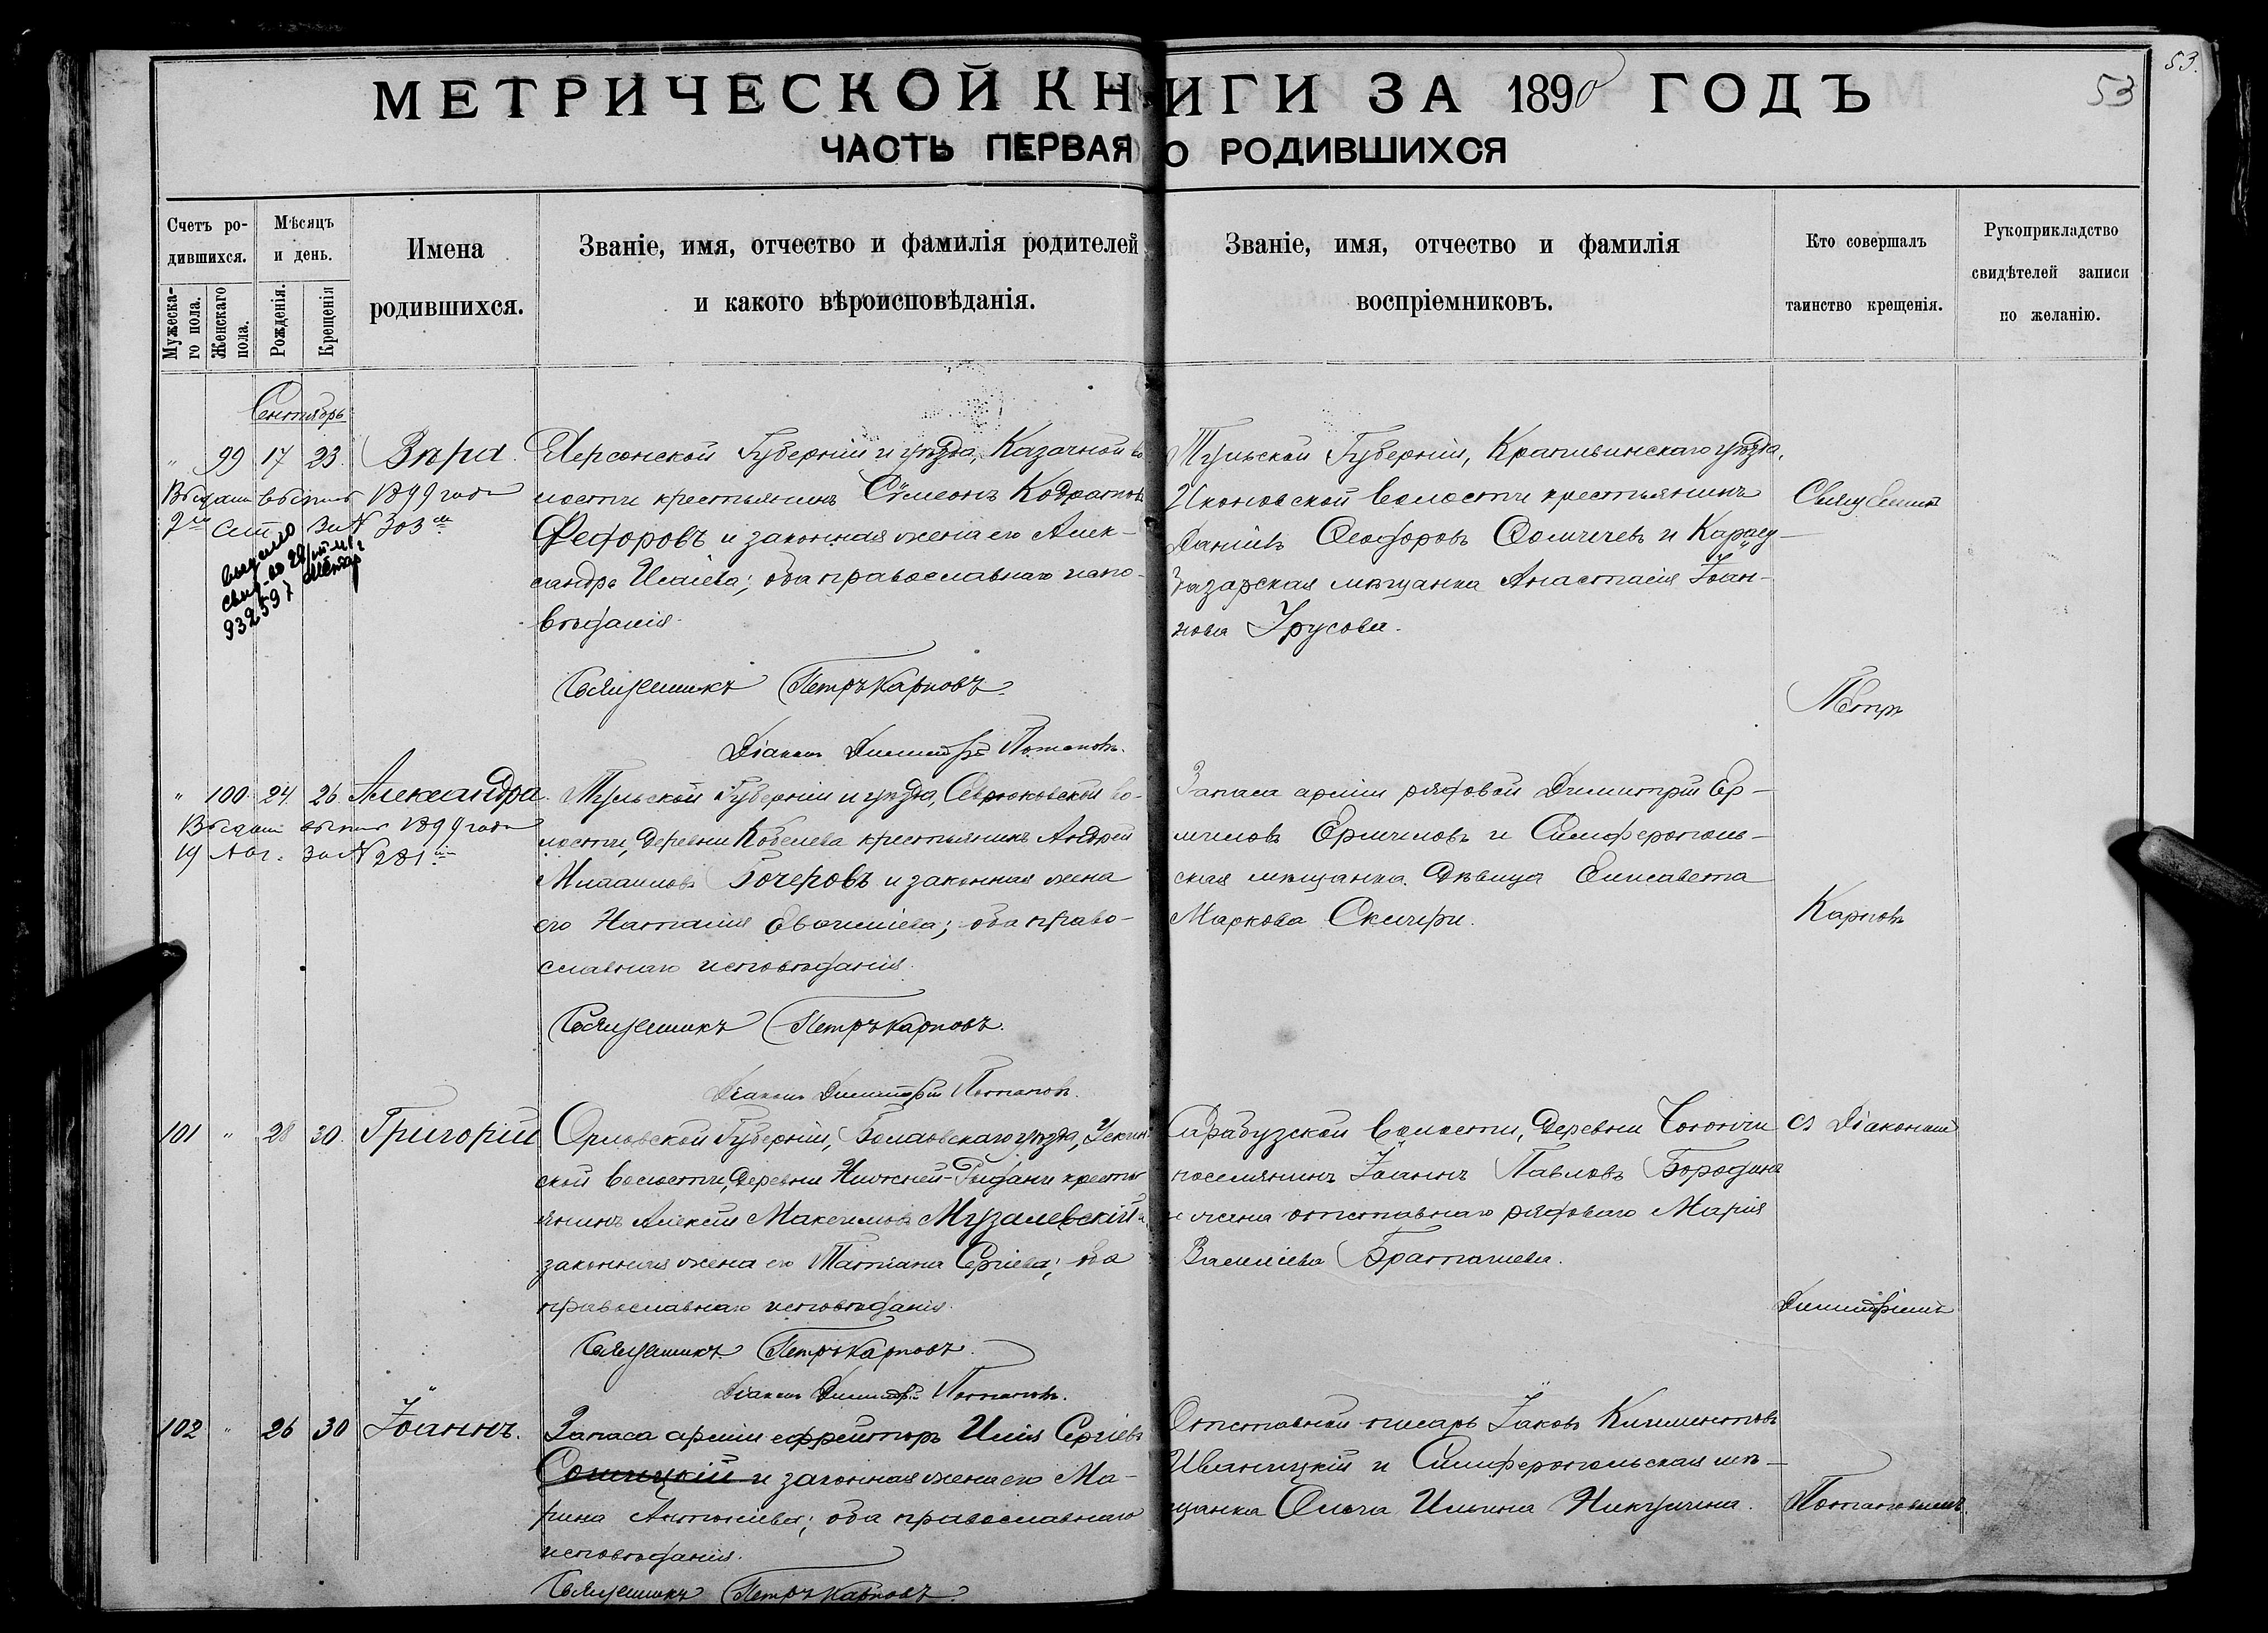 53.
53
МЕТРИЧЕСКОЙ КНИГИ ЗА 1890 ГОДЪ
ЧАСТЬ ПЕРВАЯ О РОДИВШИХСЯ
Счетъ ро-
дившихся.
Мужеска-
го пола.
Женскаго
пола.
Мѣсяцъ
и день.
Рожденія.
Крещенія
Имена
родившихся.
Званіе, имя, отчество и фамилія родителей
и какого вѣроисповѣданія.
Званіе, имя, отчество и фамилія
воспріемниковъ.
Кто совершалъ
таинство крещенія.
Рукоприкладство
свидѣтелей записи
по желанію.
Сентябрь
" 99 17 23. Вѣра.
1899 года
за № 303
932597
Херсонской Губерніи и уѣзда, Казачной во
лости крестьянинъ Сѵмеонъ Кодратовъ
Федоровъ и законная жена его Алек-
сандра Исаіева; оба православнаго испо-
вѣданія.
Священникъ Петръ Карповъ.
Діаконъ Димитрій Потаповъ.
Тульской Губерніи, Крапивинскаго уѣзда,
волости крестьянинъ
Даніилъ Ѳеодоровъ и Карасу-
базарская мѣщанка Анастасія Іоан-
нова Урусова.
" 100 24 26 Александра.
1899 года
19 Авг. за № 281
Тульской Губерніи и уѣзда, во-
лости, деревни Кобелева крестьянинъ Андрей
Михаиловъ Бочеровъ и законная жена
его Наталія; оба право-
славнаго исповѣданія.
Священникъ Петръ Карповъ.
Діаконъ Димитрій Потаповъ.
Запаса арміи рядовой Димитрій Ер-
миловъ Ермиловъ и Симферополь-
ская мѣщанка дѣвица Елисавета
Маркова
101 " 28 30. Григорій
Орловской Губерніи, Болховскаго уѣзда,
ской волости, деревни Нижней крестья
янинъ Алексій Максимовъ Музалевскій и
законная жена его Татіана Сергіева; оба
православнаго исповѣданія.
Священникъ Петръ Карповъ.
Діаконъ Димитрій Потаповъ.
Сарабузской волости, деревни
поселянинъ Іоаннъ Павловъ Бородина
и жена отставнаго рядоваго Марія
Василіева
102 " 26 30 Іоаннъ.
Запаса арміи ефрейторъ Илія Сергіевъ
и законная жена его Ма-
рина Антоніева; оба православнаго
исповѣданія.
Священникъ Петръ Карповъ.
Отставной писарь Іаковъ Климентовъ
Иваницкій и Симферопольская мѣ-
щанка Ольга Ильина Никулина.
Священникъ
Петръ
Карповъ
съ Діакономъ
Димитріемъ
Потаповымъ.